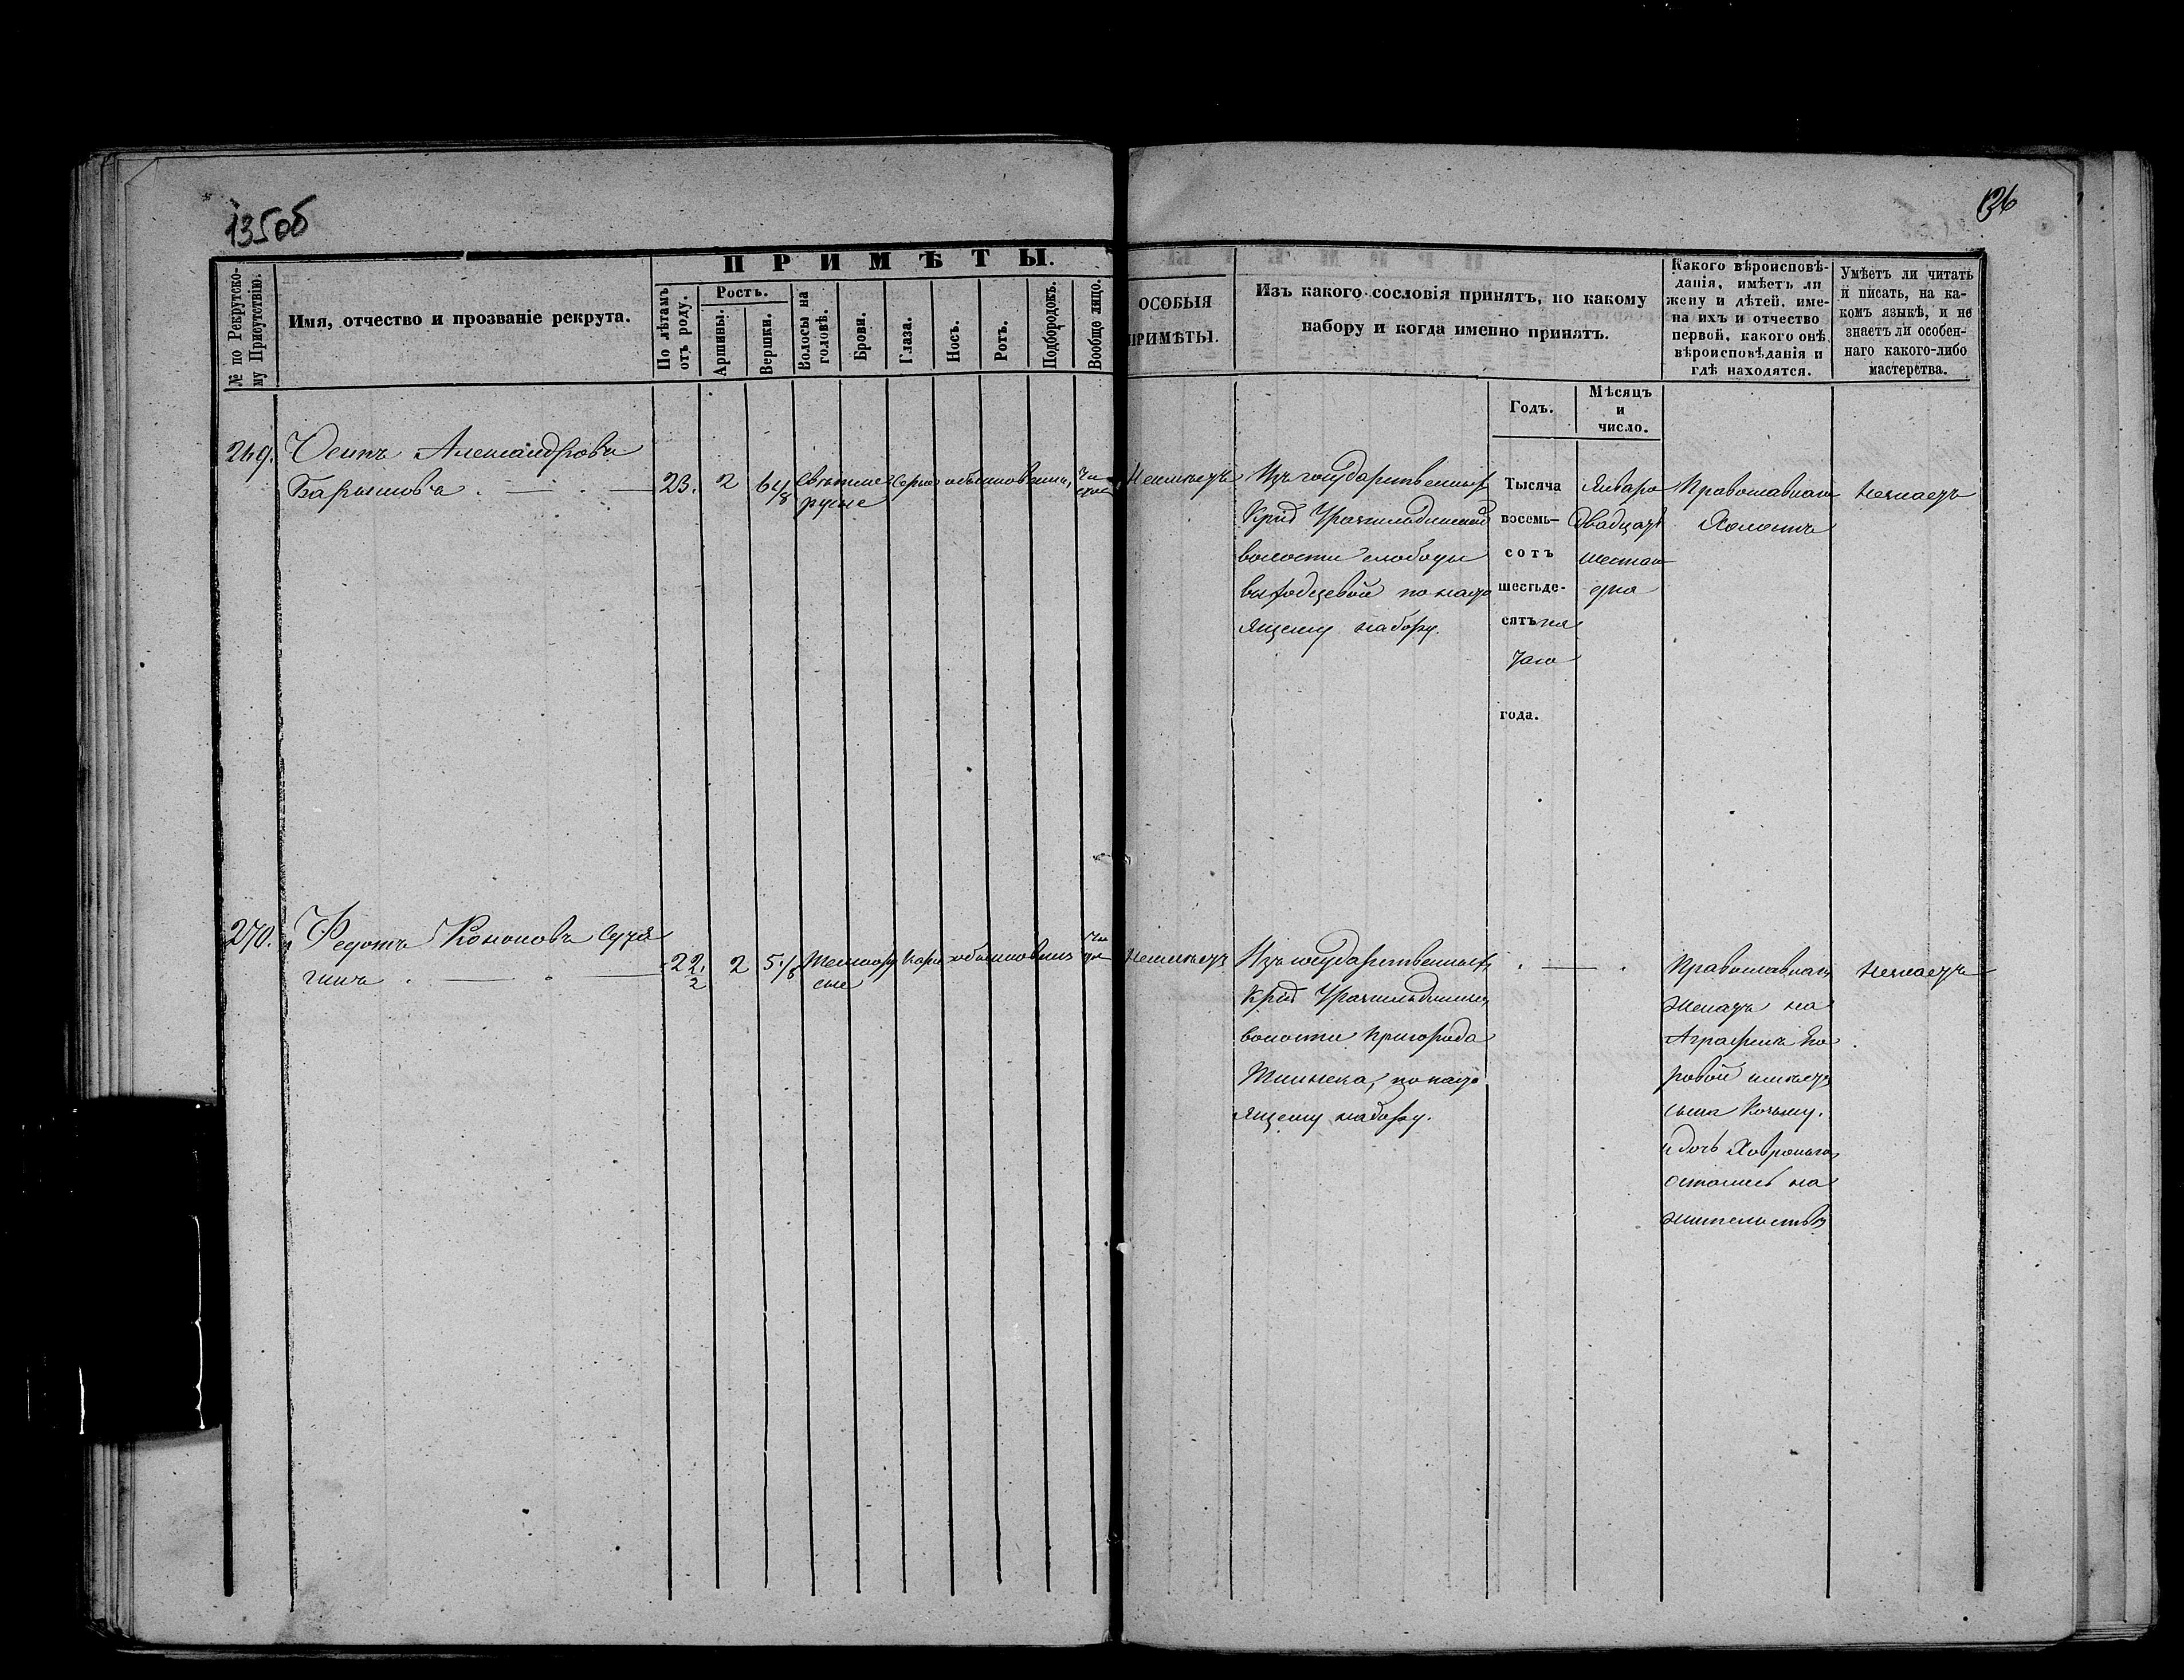 135об
136
ПРИМѢТЫ.
№ по Рекрутско-
му Присутствію.
Имя, отчество и прозваніе рекрута.
По лѣтамъ
отъ роду.
Ростъ.
Аршины.
Вершки.
Волосы на
головѣ.
Брови.
Глаза.
Носъ.
Ротъ.
Подбородокъ.
Вообще лицо.
ОСОБЫЯ
ПРИМѢТЫ.
Изъ какого сословія принятъ, по какому
набору и когда именно принятъ.
Какого вѣроисповѣ-
данія, имѣетъ ли
жену и дѣтей, име-
на ихъ и отчество
первой, какого онѣ
вѣроисповѣданія и
гдѣ находятся.
Умѣетъ ли читать
и писать, на ка-
комъ языкѣ, и не
знаетъ ли особен-
наго какого-либо
мастерства.
Годъ.
Мѣсяцъ
и
число.
Осипъ Александровъ
Барышовъ
23. 2 6 4/8 Свѣтло
русые
Сѣрые обыкновенны, Чи
стое
Неимѣетъ
Изъ государственныхъ
Крѣд
волости слободы
по насто
ящему набору.
Тысяча
восемь-
сотъ
шестьде-
сять пя
таго
года.
Января
двадцать
шестаго
дня
Православнаго
Холостъ
Незнаетъ
270.
Федотъ Кононовъ Сутя
гинъ
22 1/2 2 5 1/8 Темнору
сые
Каріе обыкновенны
Неимѣетъ
Изъ государственныхъ
волости пригорода
по насто
ящему набору.
Православнаго
женатъ на
Аграфенѣ
ровой имѣетъ
сына Козьму.
и дочь Хавронью
остались на
жительствѣ
Незнаетъ